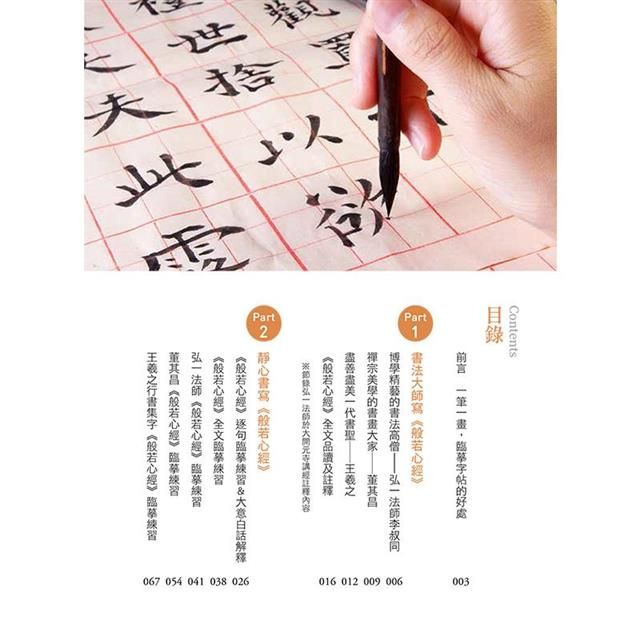 觀
世捨
夫
以
此
欲
Contents
目錄
前言 一筆一畫，臨摹字帖的好處 003
Part 1
書法大師寫《般若心經》
博學精藝的書法高僧──弘一法師李叔同 006
禪宗美學的書畫大家──董其昌 009
盡善盡美一代書聖──王羲之 012
《般若心經》全文品讀及註釋 016
※節錄弘一法師於大開元寺講經註釋內容
Part 2
靜心書寫《般若心經》
《般若心經》逐句臨摹練習＆大意白話解釋 026
《般若心經》全文臨摹練習 038
弘一法師《般若心經》臨摹練習 041
董其昌《般若心經》臨摹練習 054
王羲之行書集字《般若心經》臨摹練習 067